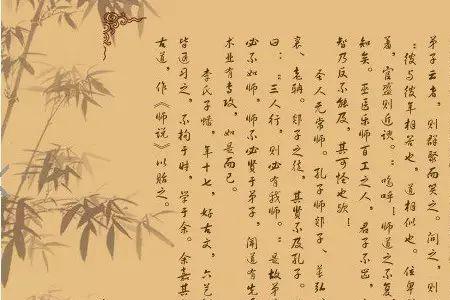 弟子云者，则群聚而笑之。问之，则
：“彼与彼年相若也，道相似也。位卑
羞，官盛则近谀。”呜呼！师道之不复
知矣。巫医乐师百工之人，君子不齿
智乃反不能及，其可怪也欤！
圣人无常师。孔子师郯子、苌弘
襄、老聃。郯子之徒，其贤不及孔子。
曰：“三人行，则必有我师。”是故弟
必不如师，师不必贤于弟子，闻道有先
术业有专攻，如是而已。
李氏子蟠，年十七，好古文，六艺
皆通习之，不拘于时，学于余。余嘉其
古道，作《师说》以贻之。